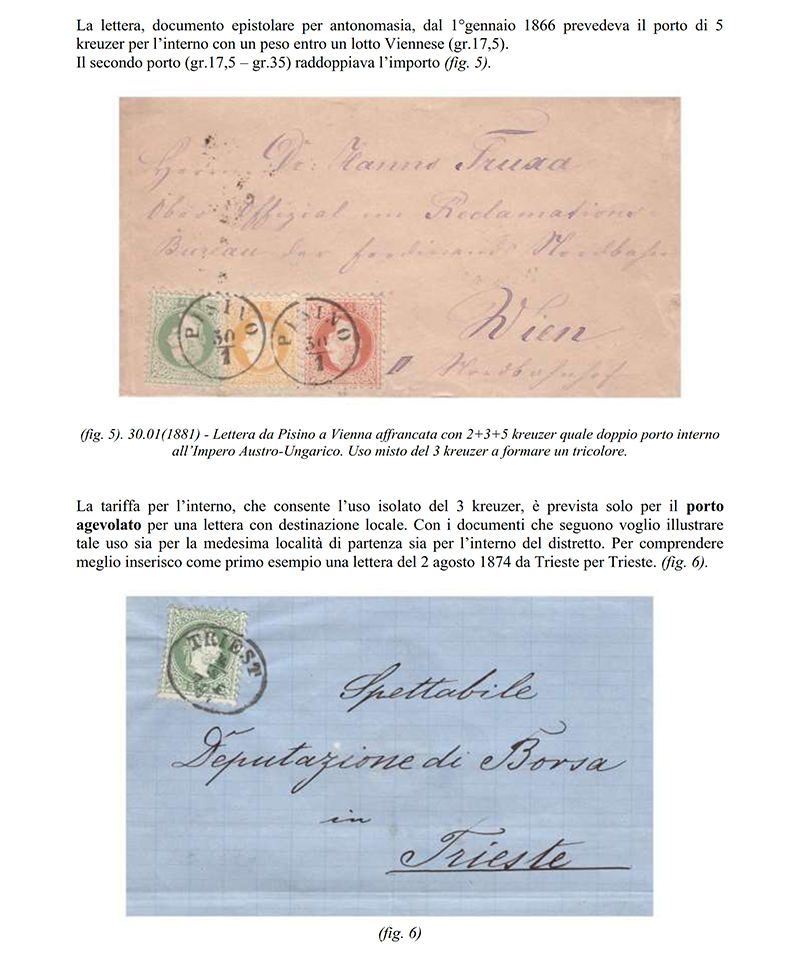 La lettera, documento epistolare per antonomasia, dal 1°gennaio 1866 prevedeva il porto di 5
kreuzer per l’interno con un peso entro un lotto Viennese (gr.17,5).
Il secondo porto (gr.17,5 – gr.35) raddoppiava l’importo (fig. 5).
Herrn Dr. Hanns
Ober Offizial im Reclamations
Bureau der Ferdinands Nordbahn
PISINO
30
1
PISINO
30
1
Wien
Nordbahnhof
(fig. 5). 30.01(1881) - Lettera da Pisino a Vienna affrancata con 2+3+5 kreuzer quale doppio porto interno
all’Impero Austro-Ungarico. Uso misto del 3 kreuzer a formare un tricolore.
La tariffa per l’interno, che consente l’uso isolato del 3 kreuzer, è prevista solo per il porto
agevolato per una lettera con destinazione locale. Con i documenti che seguono voglio illustrare
tale uso sia per la medesima località di partenza sia per l’interno del distretto. Per comprendere
meglio inserisco come primo esempio una lettera del 2 agosto 1874 da Trieste per Trieste. (fig. 6).
TRIEST
Spettabile
Deputazione di Borsa
in
Trieste
(fig. 6)